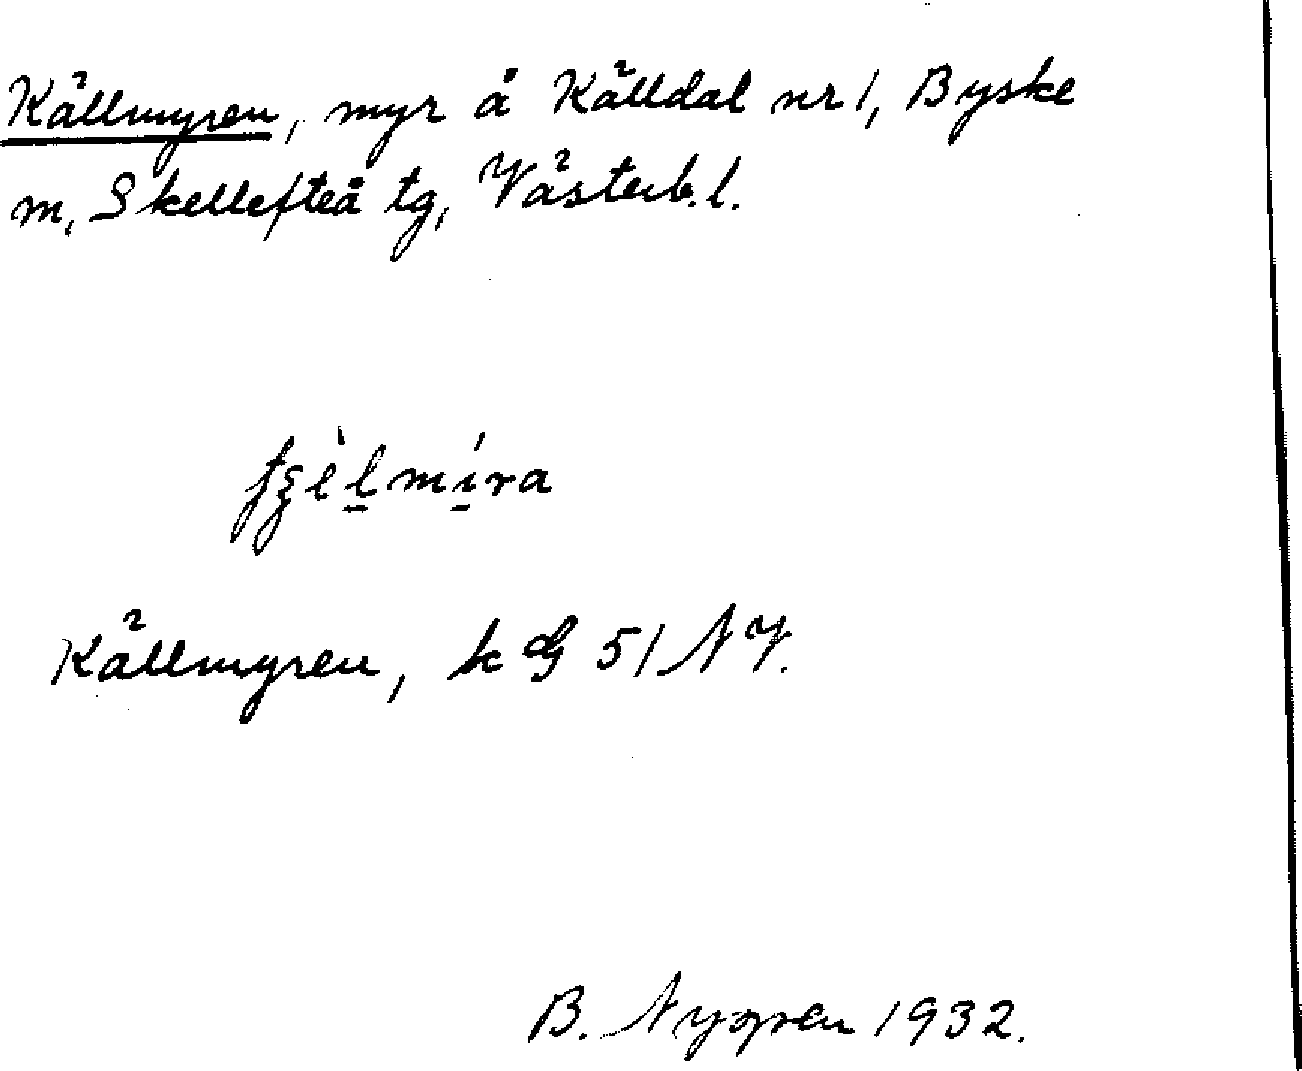 Källmyren, myr å Källdal nr 1, Byske
m, Skellefteå tg, Västerb. l.
Källmyren, k 51 NV.
B. Nygren 1932.